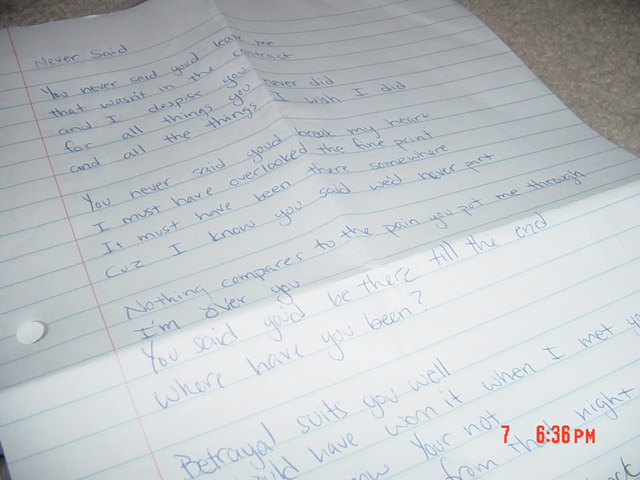 Never Said
You never said you'd leave me
that wasn't in the contract
and I despise you
for all things you never did
and all the things I wish I did
You never said you'd break my heart
I must have overlooked the fine print
It must have been there somewhere
Cuz I know you said we'd never part
Nothing compares to the pain you put me through
I'm over you
You said you'd be there till the end
where have you been?
Betrayal suits you well
have worn it when I met
Your not
from that night
7 6:36 PM